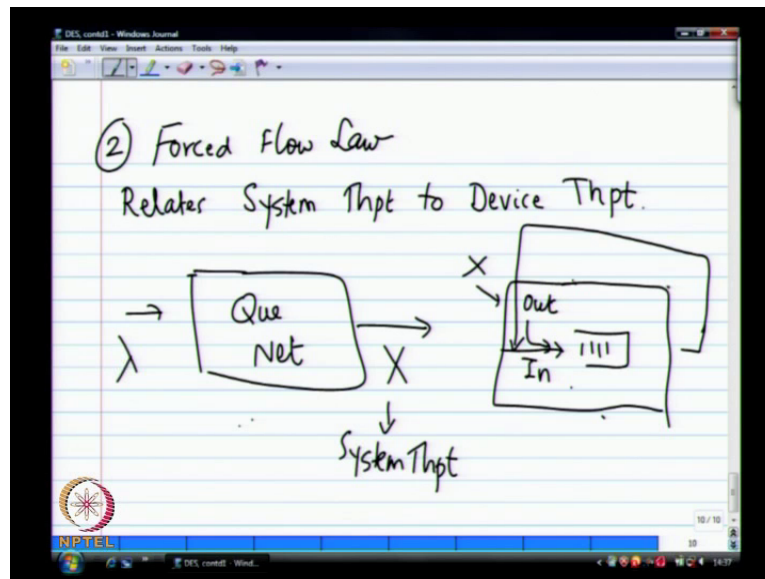 DES, contd1 - Windows Journal
File Edit View Insert Actions Tools Help
② Forced Flow Law
Relates System Thpt to Device Thpt.
λ
Que
Net
X
System Thpt
X
Out
In
10 / 10
10
NPTEL
DES, contd1 - Wind...
14:37